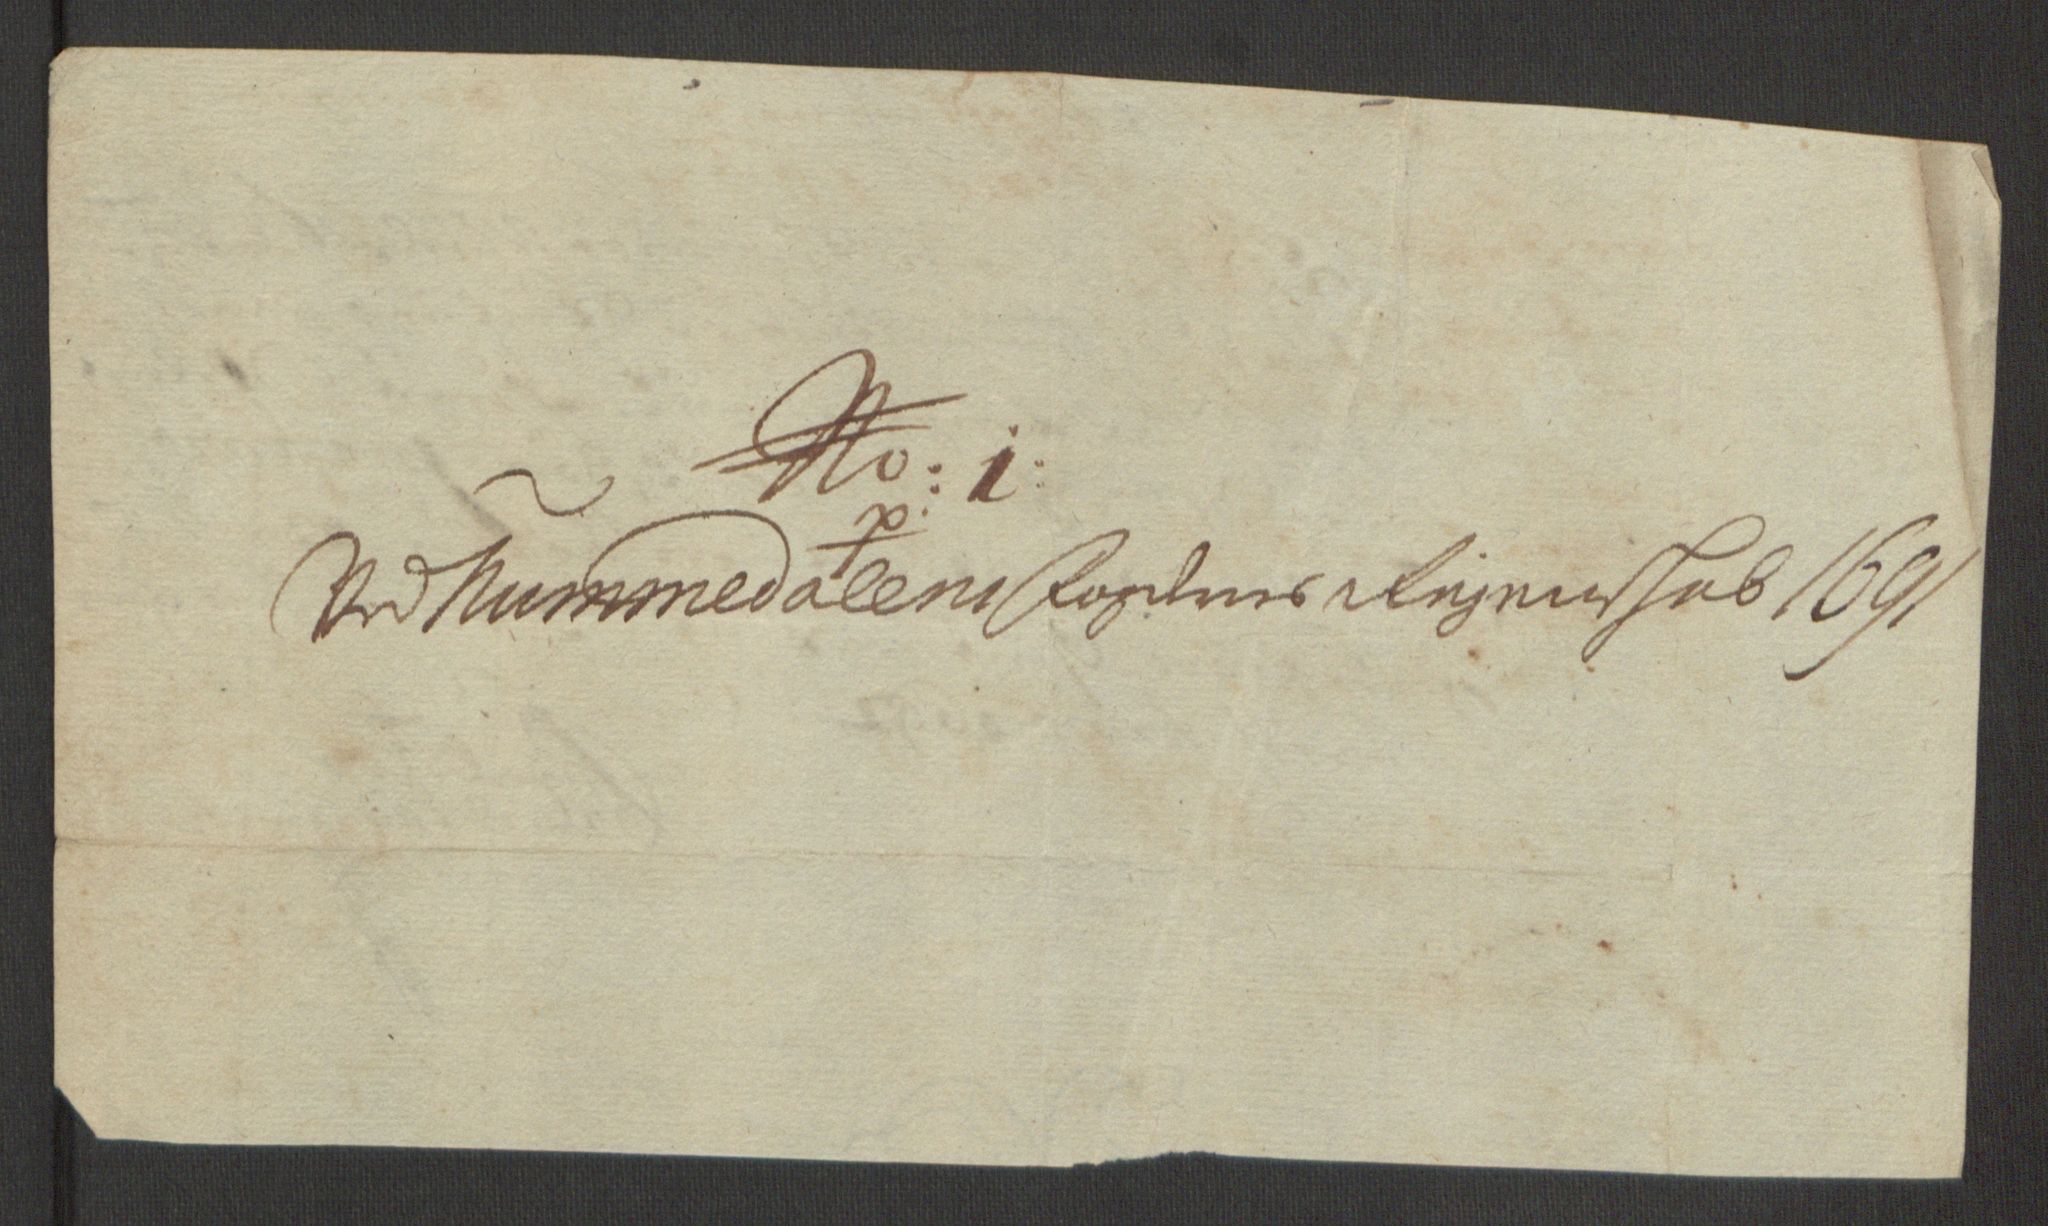 No: 1:
p:
Ved Nummedalens Fogderies Regenschab 1691